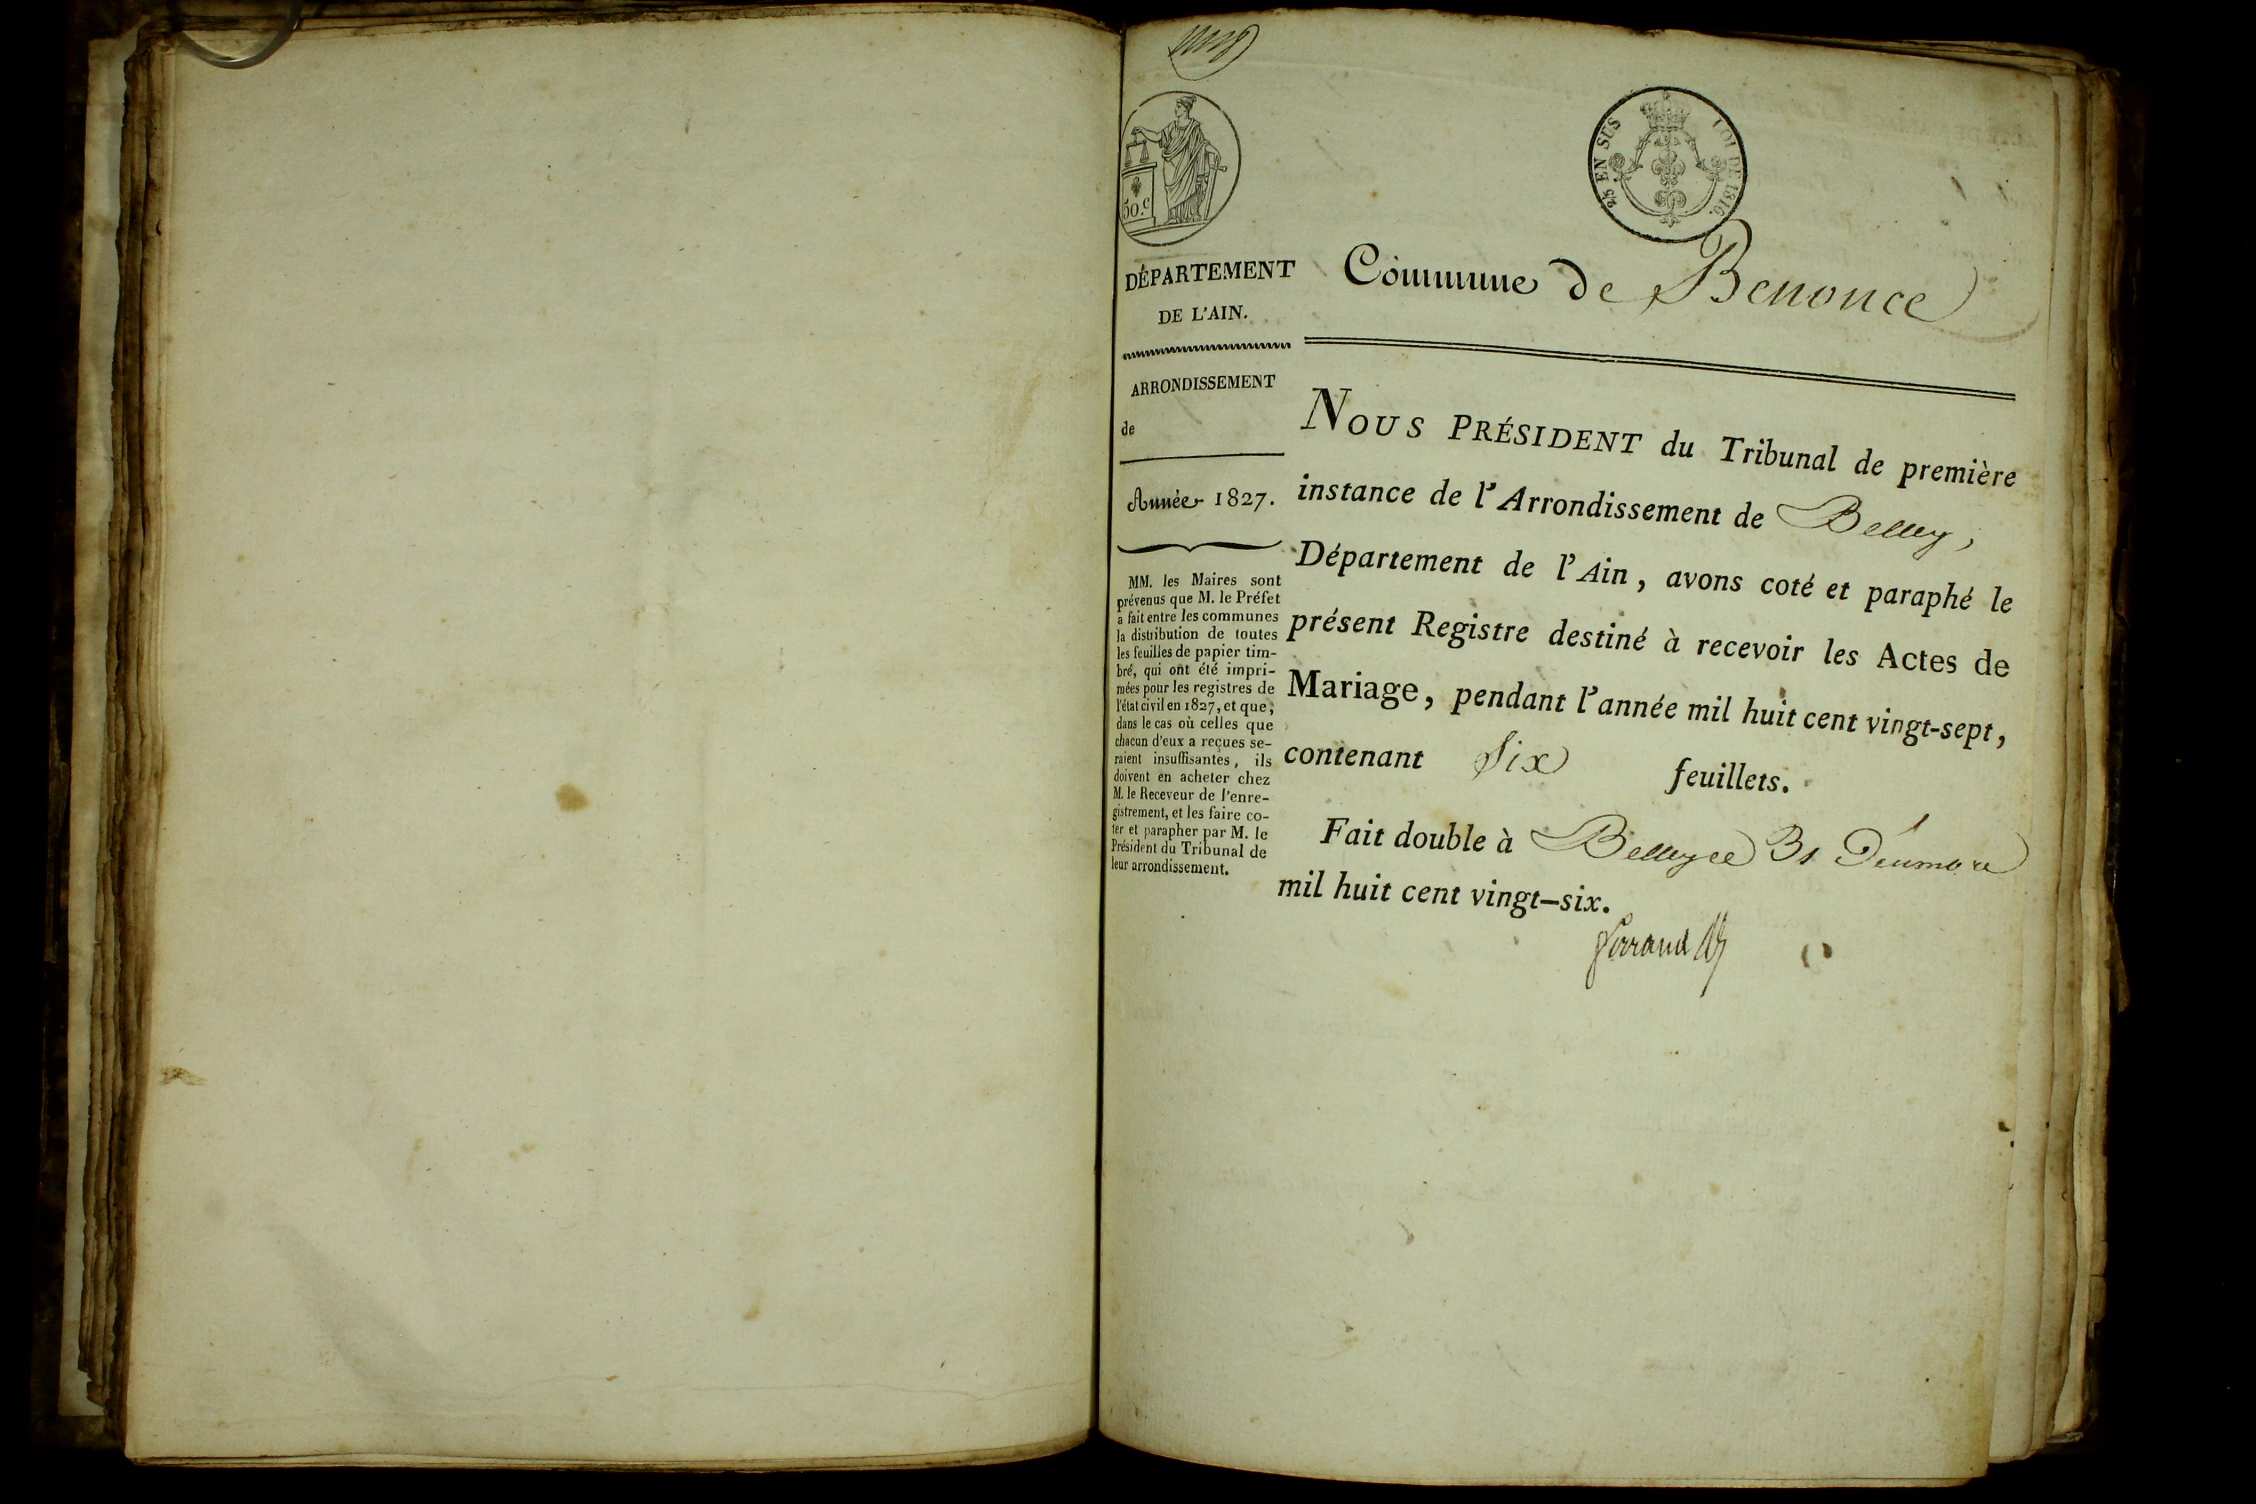 50.c
25 EN SUS
LOI DE 1816.
DÉPARTEMENT
DE L'AIN.
ARRONDISSEMENT
de
Année 1827.
MM. les Maires sont
prévenus que M. le Préfet
a fait entre les communes
la distribution de toutes
les feuilles de papier tim-
bré, qui ont été impri-
mées pour les registres de
l'état civil en 1827, et que,
dans le cas où celles que
chacun d'eux a reçues se-
raient insuffisantes, ils
doivent en acheter chez
M. le Receveur de l'enre-
gistrement, et les faire co-
ter et parapher par M. le
Président du Tribunal de
leur arrondissement.
Commune de Benonce
NOUS PRÉSIDENT du Tribunal de première
instance de l'Arrondissement de Belley,
Département de l'Ain, avons coté et paraphé le
présent Registre destiné à recevoir les Actes de
Mariage, pendant l'année mil huit cent vingt-sept,
contenant Six feuillets.
Fait double à Belley ce 31 Décembre
mil huit cent vingt-six.